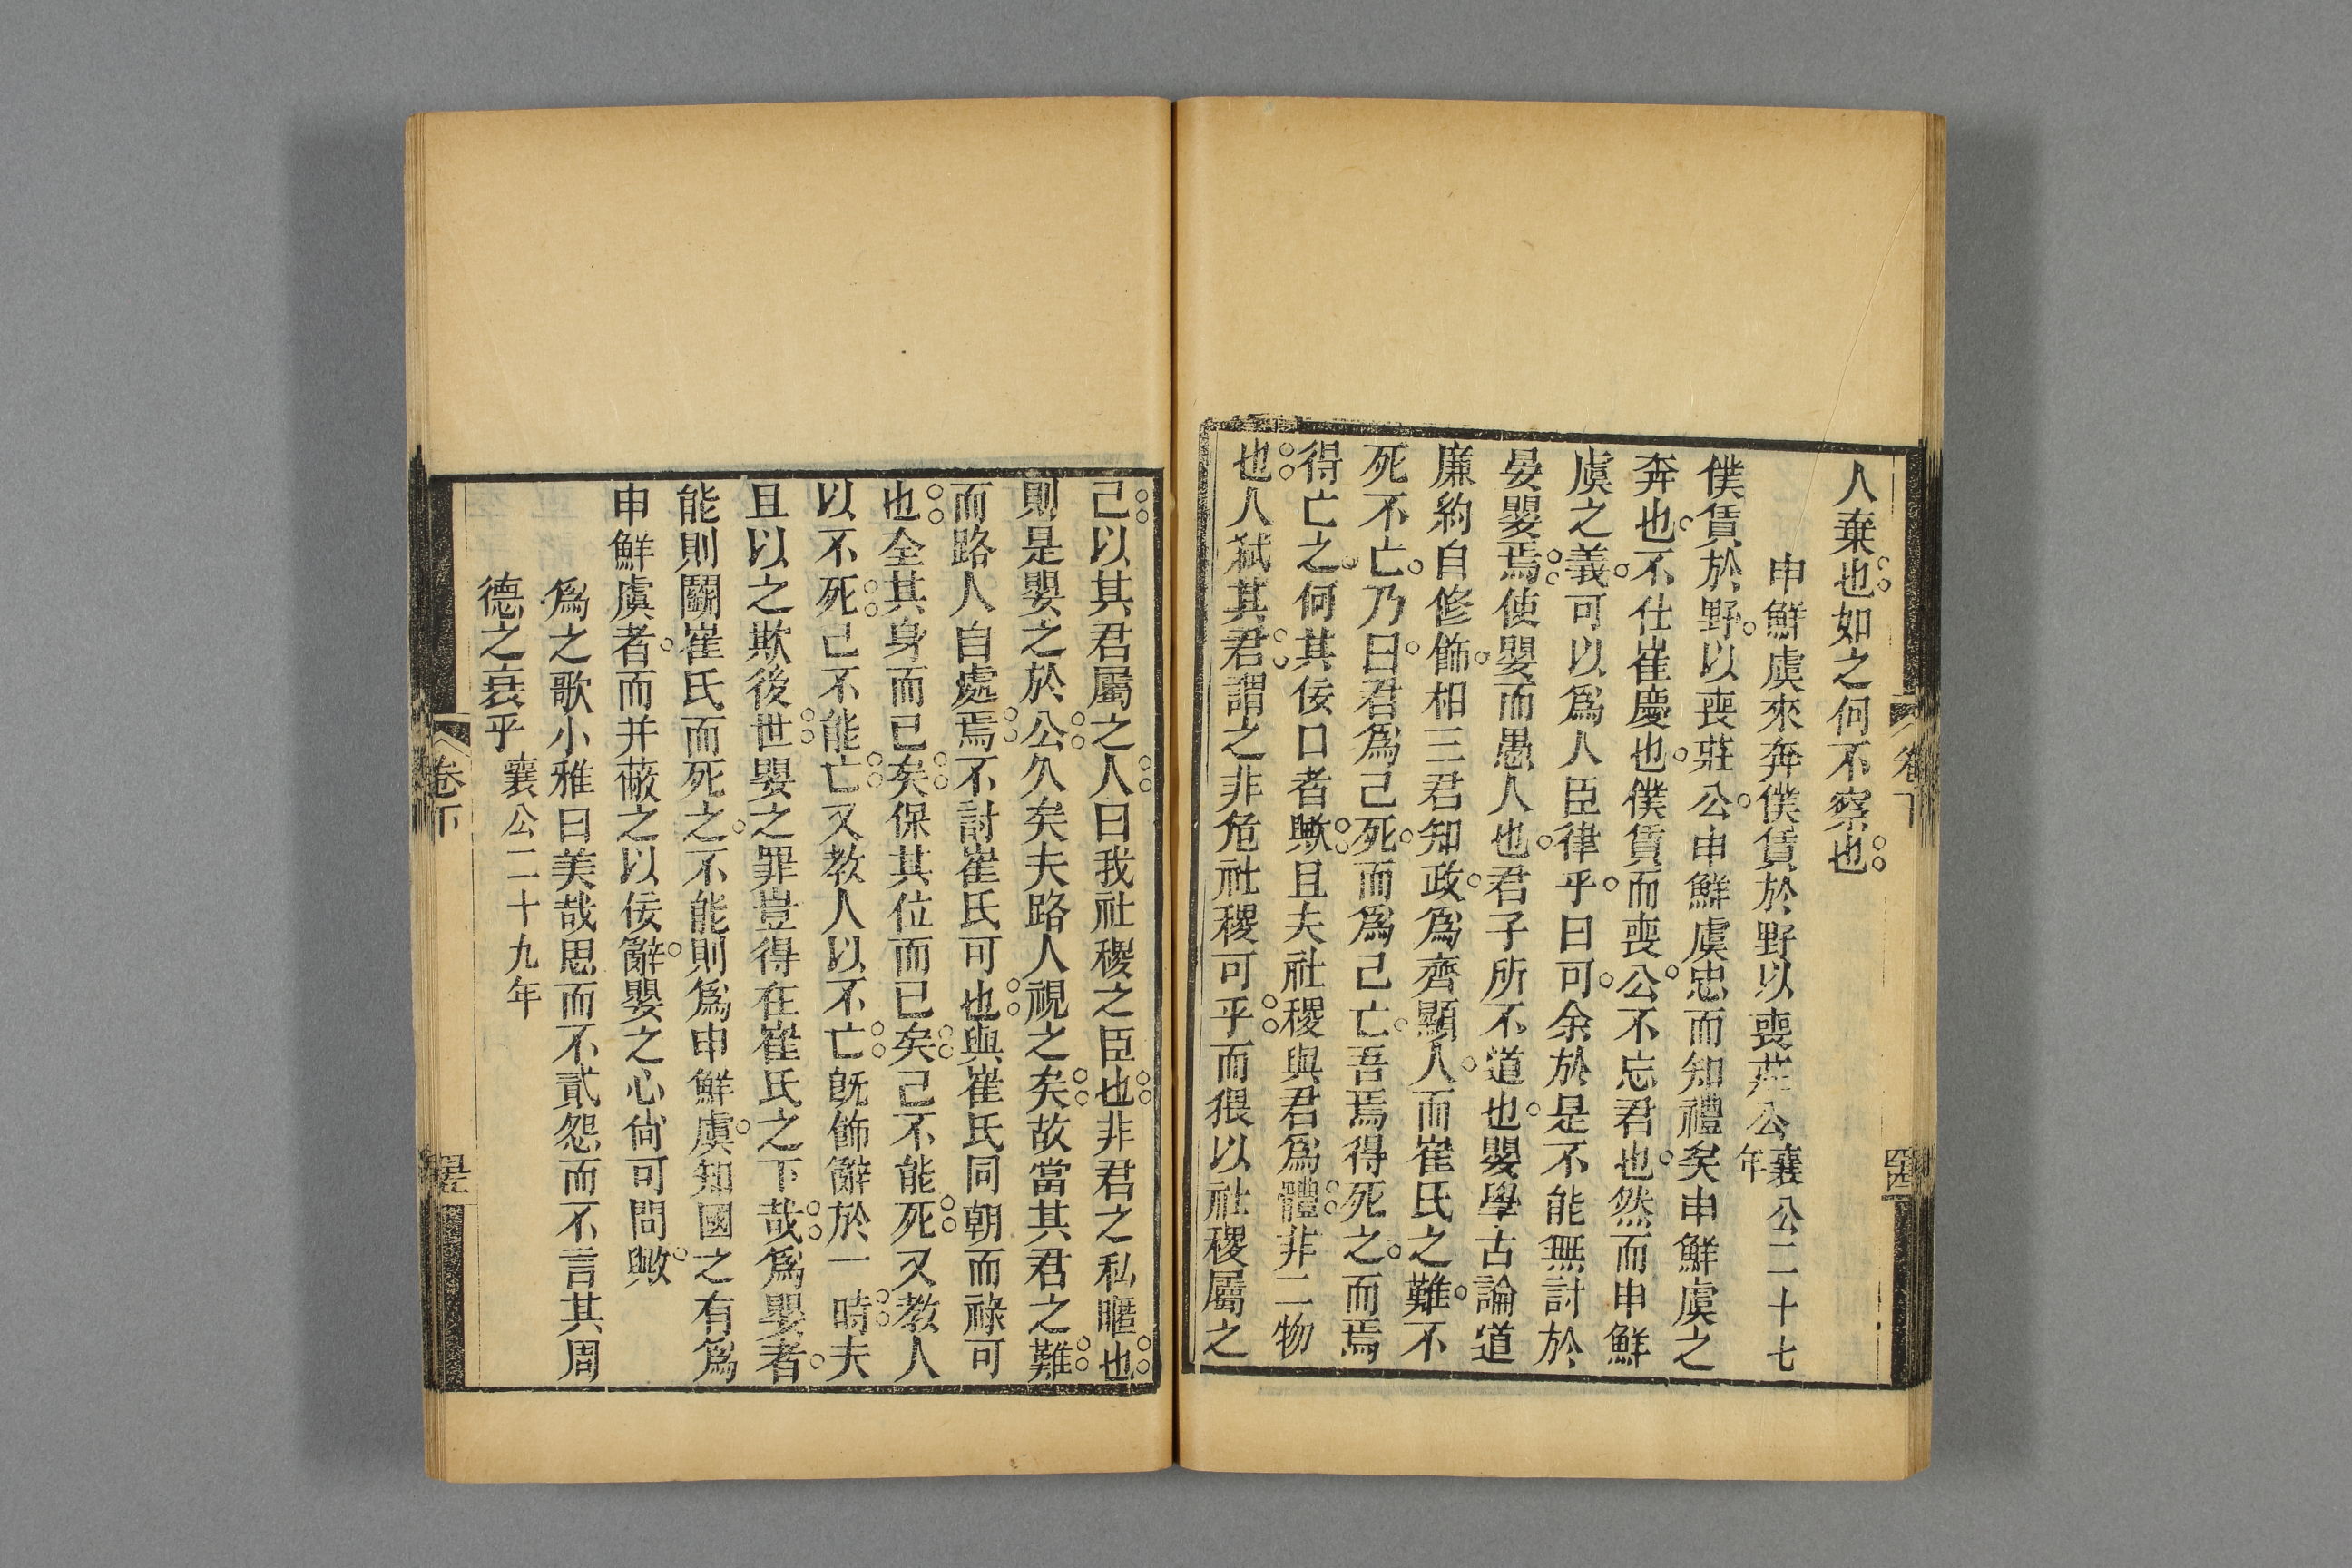 人棄也如之何不察也
申鮮虞來奔僕賃於野以喪莊公襄公二十七年
僕賃於野以喪莊公申鮮虞忠而知禮矣申鮮虞之
奔也不仕崔慶也僕賃而喪公不忘君也然而申鮮
虞之義可以爲人臣律乎曰可余於是不能無討於
晏嬰焉使嬰而愚人也君子所不道也嬰學古論道
廉約自修飾相三君知政爲齊顯人而崔氏之難不
死不亡乃曰君爲己死而爲己亡吾焉得死之而焉
得亡之何其佞口者歟且夫社稷與君爲體非二物
也人弒其君謂之非危社稷可乎而猥以社稷屬之
卷下
四
己以其君屬之人曰我社稷之臣也非君之私暱也
則是嬰之於公久矣夫路人視之矣故當其君之難
而路人自處焉不討崔氏可也與崔氏同朝而祿可
也全其身而已矣保其位而已矣己不能死又教人
以不死己不能亡又教人以不亡旣飾辭於一時夫
且以之欺後世嬰之罪豈得在崔氏之下哉爲嬰者
能則鬭崔氏而死之不能則爲申鮮虞知國之有爲
申鮮虞者而并蔽之以佞辭嬰之心尙可問歟
爲之歌小雅曰美哉思而不貳怨而不言其周
德之衰乎襄公二十九年
卷下